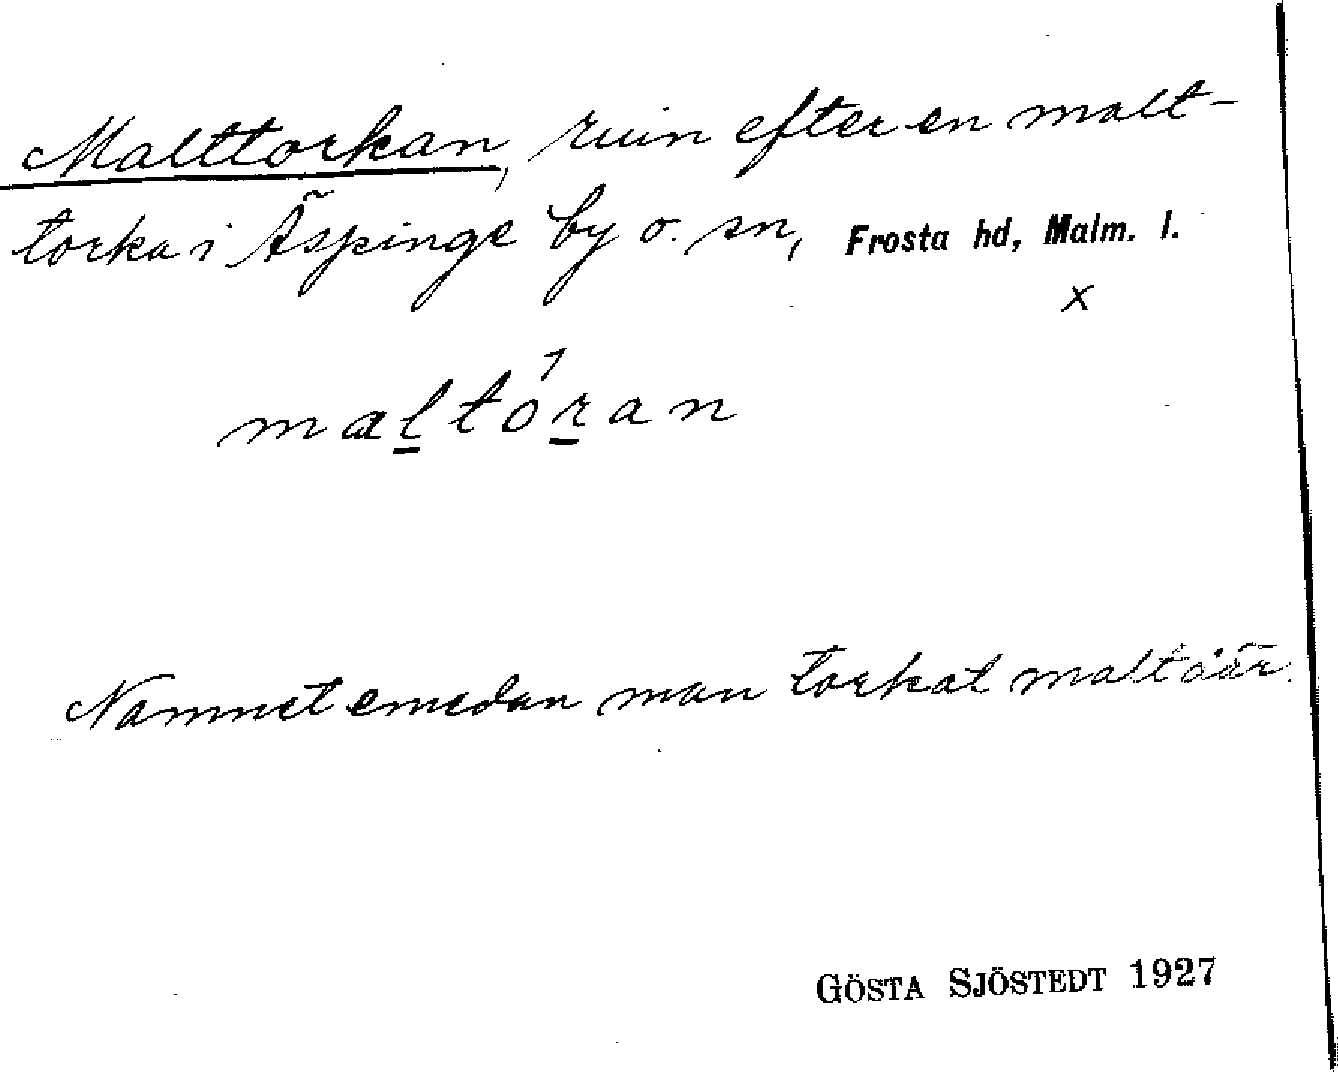 Malttorkan, ruin efter en malt-
torka i Äspinge by o. sn, Frosta hd, Malm. l.
x
maltóran
Namnet emedan man torkat malt där.
GÖSTA SJÖSTEDT 1927